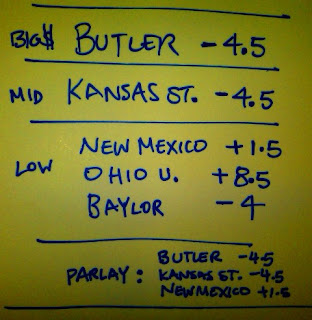 BIG$ BUTLER -4.5
MID KANSAS ST. -4.5
NEW MEXICO +1.5
LOW OHIO U. +8.5
BAYLOR -4
PARLAY: BUTLER -4.5
KANSAS ST. -4.5
NEW MEXICO +1.5